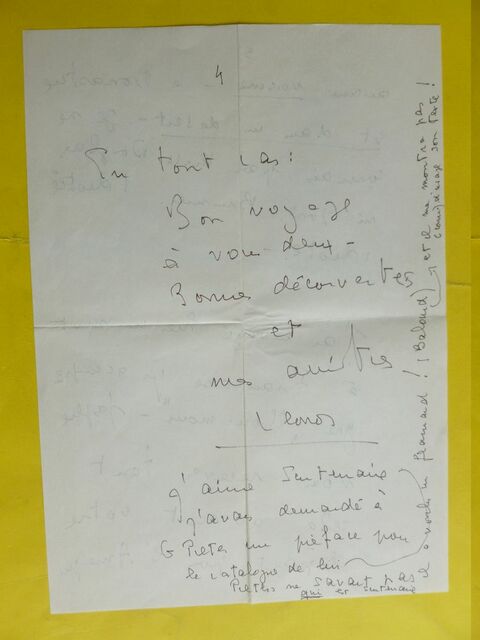 4
En tout cas:
Bon voyage
à vous deux -
Bonnes découvertes
et
mes amitiés
J'aime Sentenaire
J'avais demandé à
G Pietes une préface pour
le catalogue de lui
Pietes ne savait pas
qui est Sentenaire
et a voulu un flamand! (Baloud) et il ne montra pas
son texte!